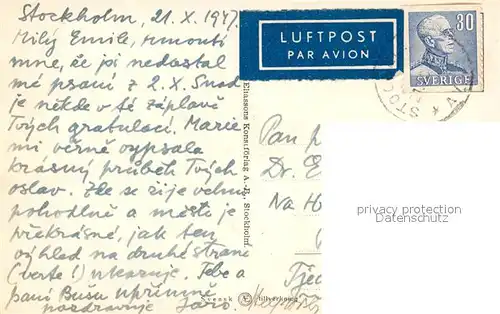 Stockholm, 21.X.1947.
Milý Emile, rmoutí
mne, že jsi nedostal
mé psaní z 2.X. Snad
je někde v té záplavě
Tvých gratulací. Marie
mi věrně vypsala
krásný průběh Tvých
oslav. Zde se žije velmi
pohodlně a město je
překrásné, jak ten
výhled na druhé straně
(verte!) ukazuje. Tebe a
paní Bušu upřímně
pozdravuje Jaro.
LUFTPOST
PAR AVION
30
SVERIGE
STOC
Eliassons Konstförlag A.-B., Stockholm.
Svensk tillverkning
Pan p
Dr. E
Na H
privacy protection
Datenschutz